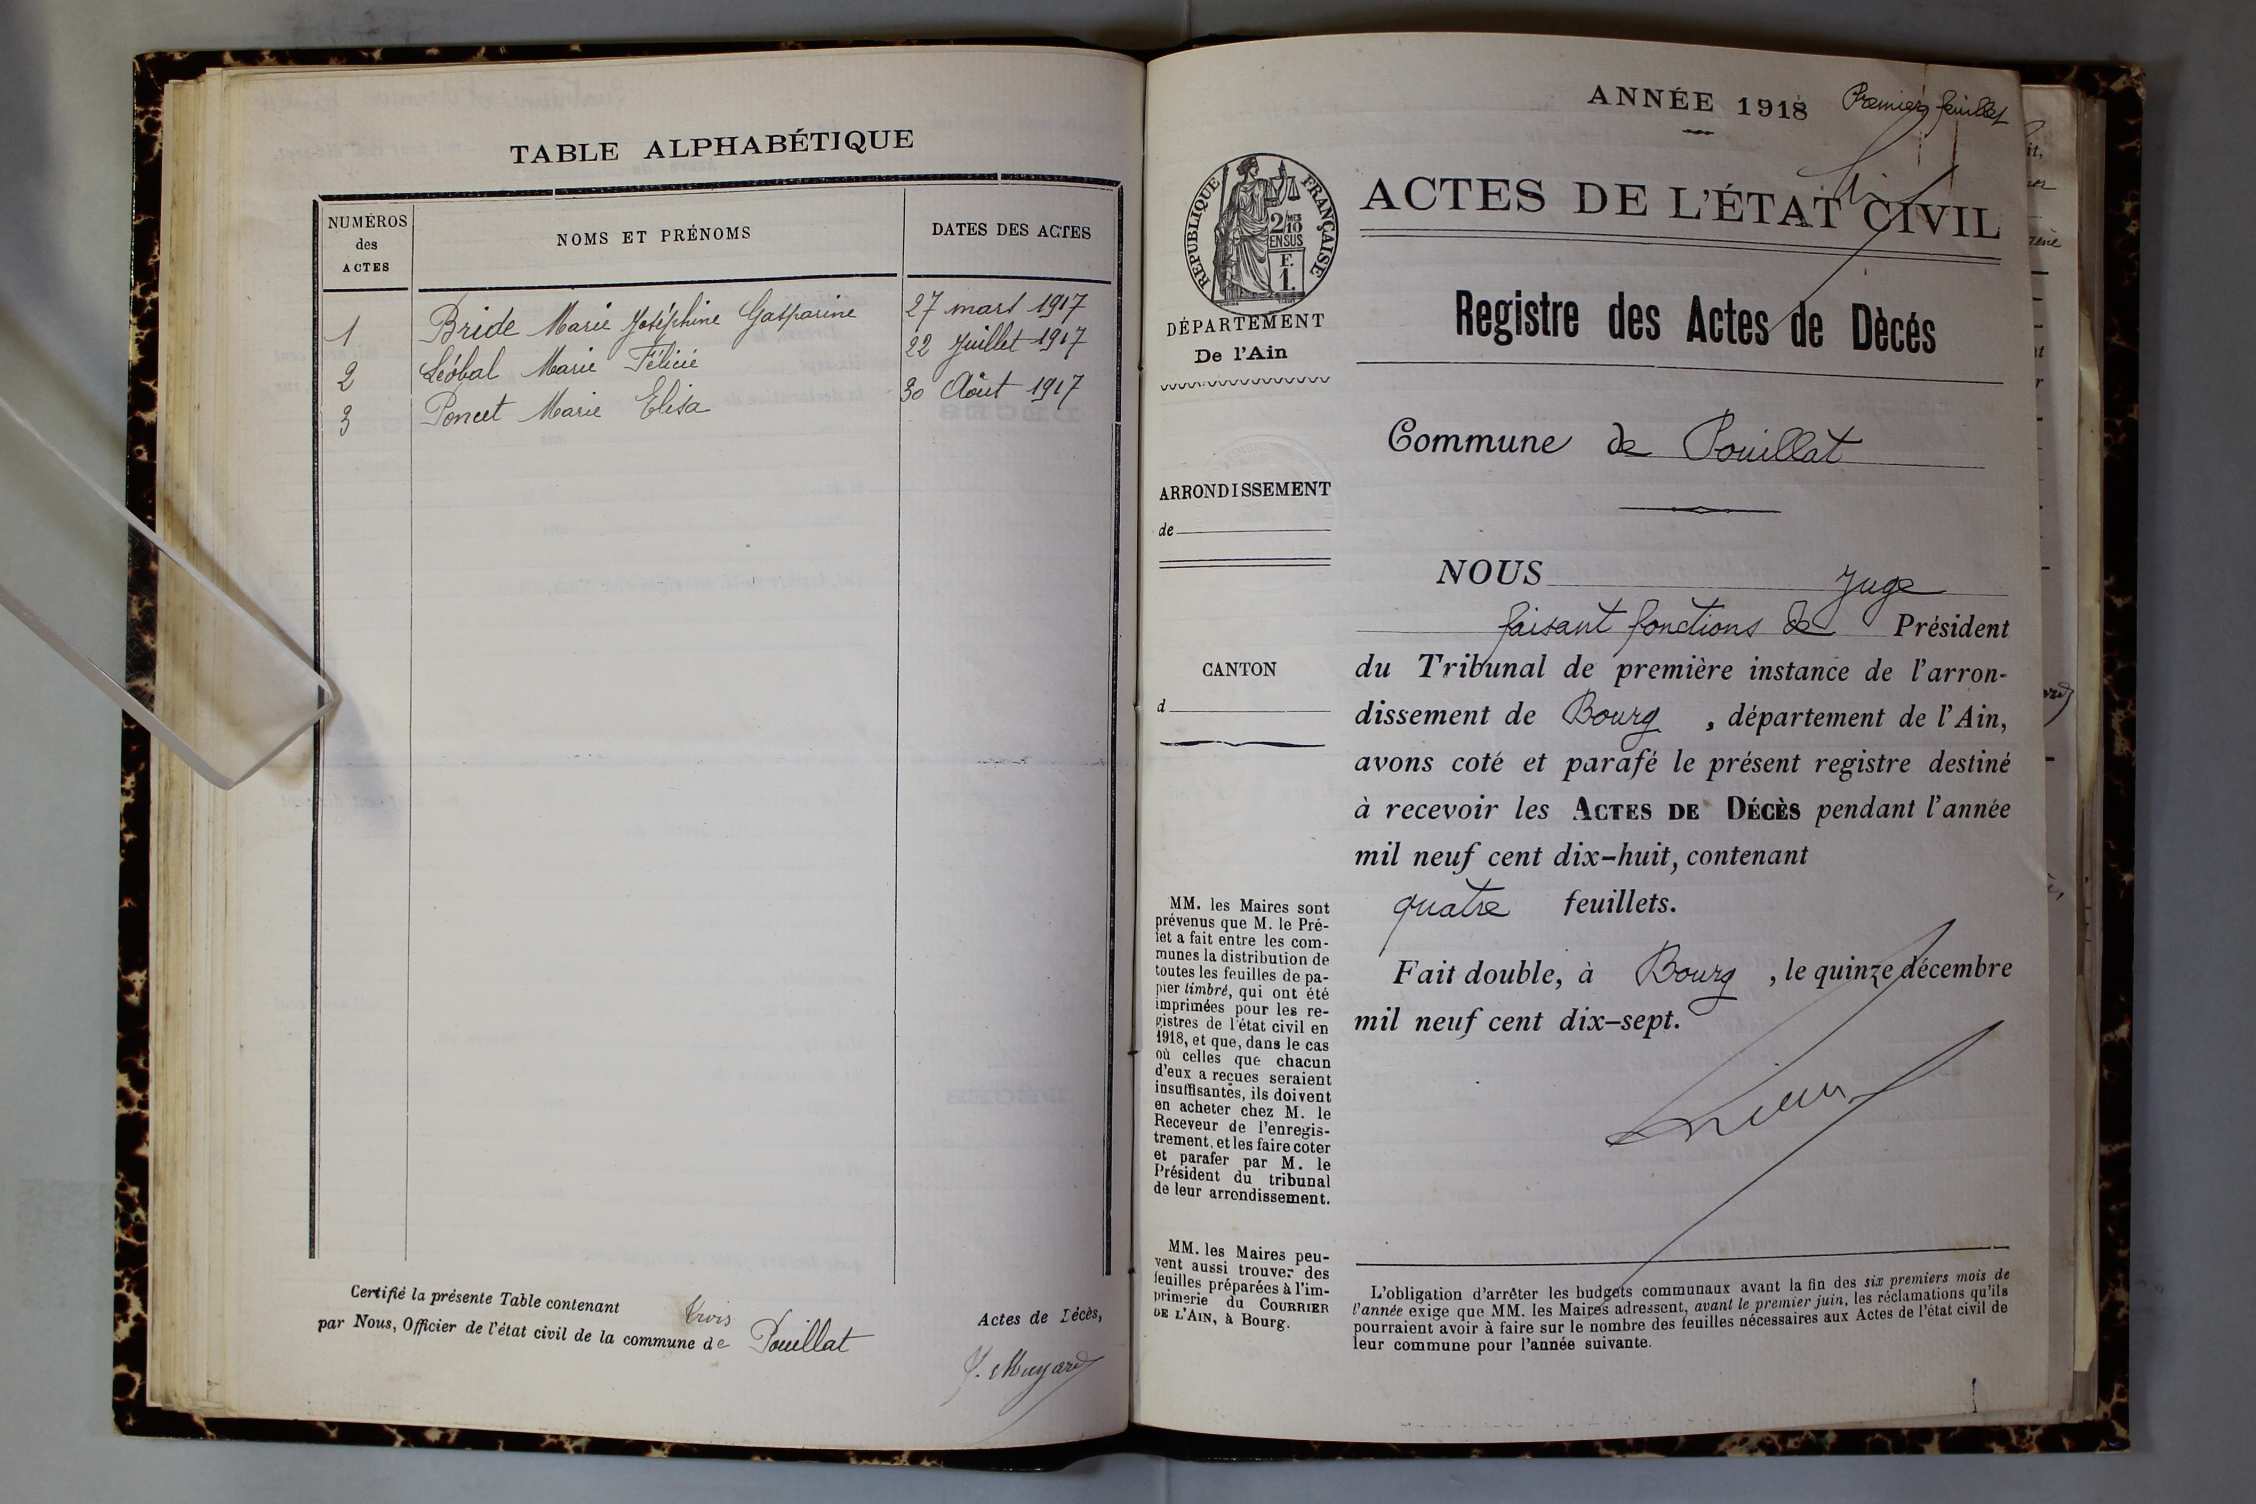 TABLE ALPHABÉTIQUE
NUMÉROS
des
ACTES
NOMS ET PRÉNOMS
DATES DES ACTES
1 Bride Marie Joséphine Gasparine 27 mars 1917
2 Léobal Marie Félicie 22 Juillet 1917
3 Poncet Marie Elisa 30 Août 1917
Certifié la présente Table contenant trois Actes de Décès,
par Nous, Officier de l'état civil de la commune de Pouillat
ANNÉE 1918 Premier feuillet
RÉPUBLIQUE FRANÇAISE
2/10 MES
EN SUS
F.
1.
DÉPARTEMENT
De l'Ain
ARRONDISSEMENT
de
CANTON
d
MM. les Maires sont
prévenus que M. le Pré-
fet a fait entre les com-
munes la distribution de
toutes les feuilles de pa-
pier timbré, qui ont été
imprimées pour les re-
gistres de l'état civil en
1918, et que, dans le cas
où celles que chacun
d'eux a reçues seraient
insuffisantes, ils doivent
en acheter chez M. le
Receveur de l'enregis-
trement, et les faire coter
et parafer par M. le
Président du tribunal
de leur arrondissement.
MM. les Maires peu-
vent aussi trouver des
feuilles préparées à l'im-
primerie du COURRIER
DE L'AIN, à Bourg.
ACTES DE L'ÉTAT CIVIL
Registre des Actes de Dècés
Commune de Pouillat
NOUS Juge
faisant fonctions de Président
du Tribunal de première instance de l'arron-
dissement de Bourg, département de l'Ain,
avons coté et parafé le présent registre destiné
à recevoir les ACTES DE DÉCÈS pendant l'année
mil neuf cent dix-huit, contenant
quatre feuillets.
Fait double, à Bourg, le quinze décembre
mil neuf cent dix-sept.
L'obligation d'arrêter les budgets communaux avant la fin des six premiers mois de
l'année exige que MM. les Maires adressent, avant le premier juin, les réclamations qu'ils
pourraient avoir à faire sur le nombre des feuilles nécessaires aux Actes de l'état civil de
leur commune pour l'année suivante.